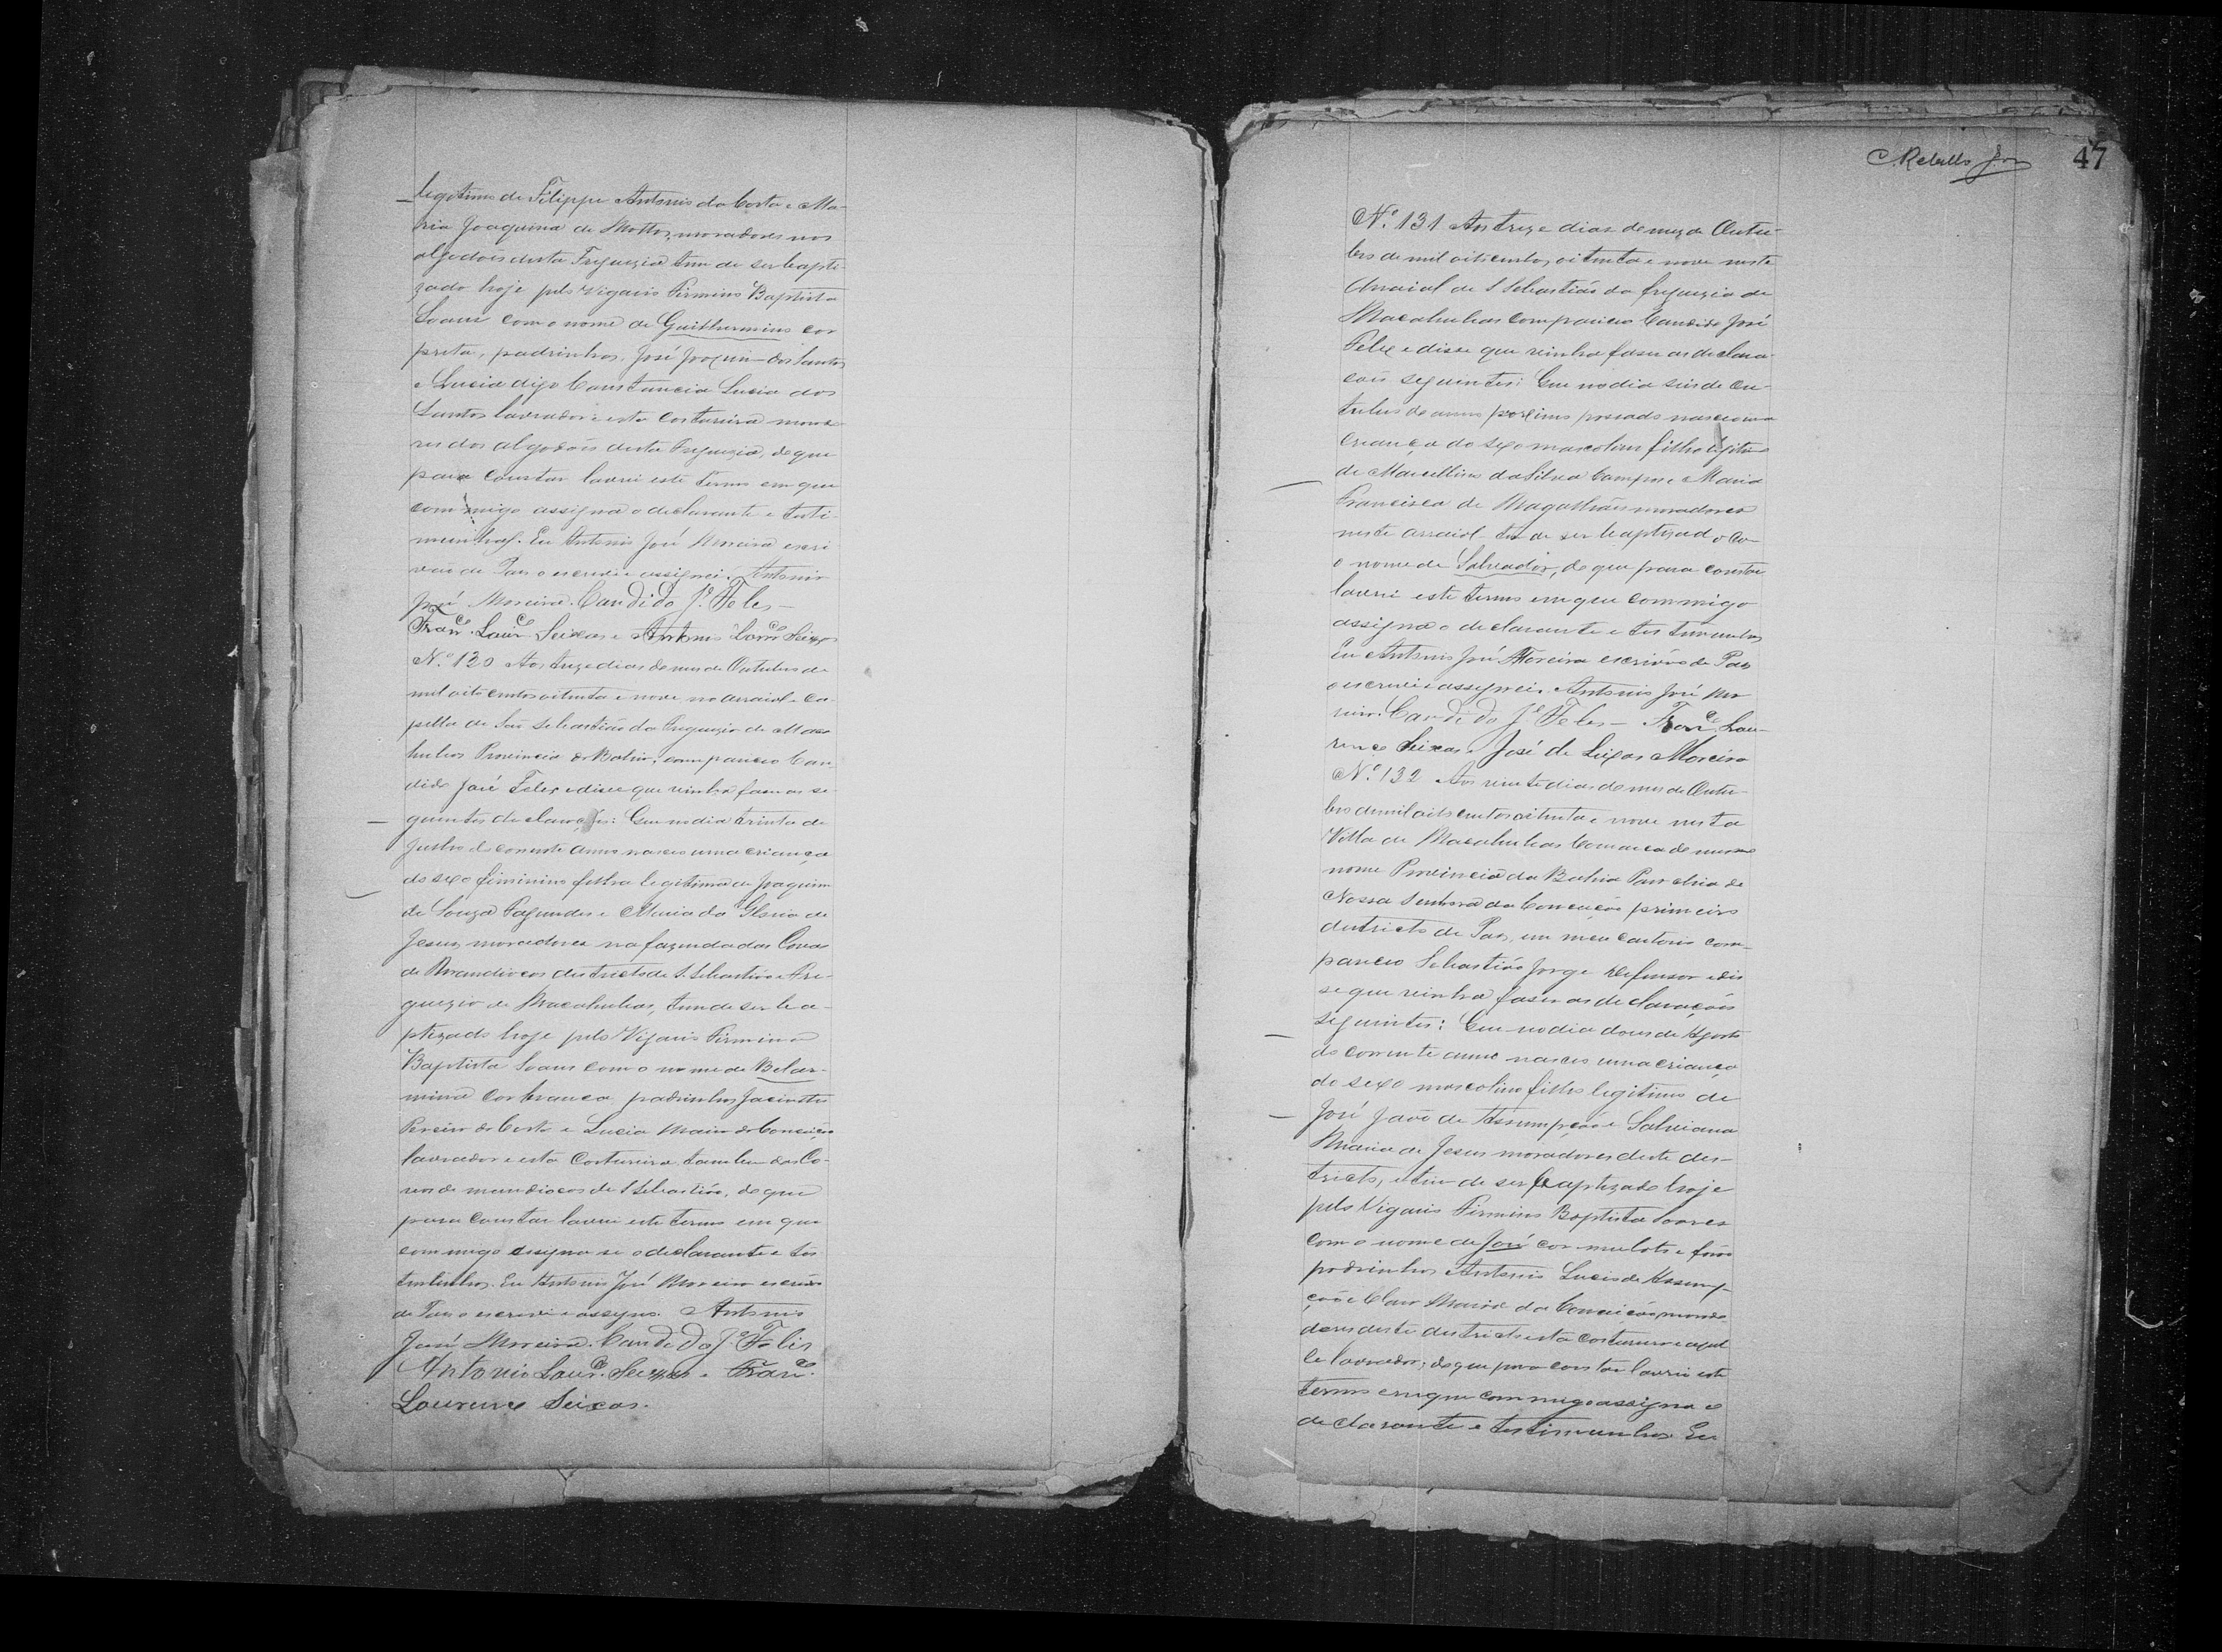 legitimo de Filippe Antonio da Costa e Ma-
ria Joaquina de Mattos, moradores nos
algodois desta Freguezia tem de ser bapti-
zado hoje pelo Vigario Firmino Baptista
Soares com o nome de Guilhermino cor
preta, padrinhos, José Joaquim dos Santos
e Lucia digo Constancia Lucia dos
Santos lavrador e esta costureira morado
res dos algodois desta Freguezia, de que
para constar lavrei este termo em que
commigo assigna o declarante e testi-
munhas. Eu Antonio José Moreira escri
vão de Paz o escrevi e assignei. Antonio
José Moreira. Candido Je. Feles
Franco. Laurco. Seixas e Antonio Laurco Seixas
No. 130 Aos treze dias do mes de Outubro de
mil oito centos oitenta e nove no arraial e Ca-
pella de São Sebastião da Freguezia de Maca
hubas Provincia da Bahia, compareceo Can-
dido José Felex e disse que vinha faser as se-
guintes declaraçois: Que no dia trinta de
Julho do corrente anno nasceo uma criança
do sexo feminino filha legitima de Joaquim
de Souza Fagundes e Maria da Gloria de
Jesus moradores na fazenda das Covas
de Mandiocas destricto de S. Sebastião e Fre-
guezia de Macahubas, tem de ser ba-
ptizada hoje pelo Vigario Firmino
Baptista Soares com o nome de Belar-
mina cor branca, padrinhos Jacintho
Pereira da Costa e Lucia Maria da Conceição
lavrador e esta Costureira tambem das Co-
vas de mandiocas de S Sebastião, de que
para constar lavrei este termo em que
commigo assigna-se o declarante e tes
timunhas. Eu Antonio José Moreira escrivão
de Paz o escrevi e assigno. Antonio
José Moreira. Candido Je Felis
Antonio Laurco. Seixas. Franco.
Lourenço Seixas.
C. Rebello Jor
47
No. 131 Aos treze dias do mez de Outu-
bro de mil oitocentos oitenta e nove neste
Arraial de S Sebastião da freguezia de
Macahubas compareceo Candido José
Felex e disse que vinha faser as declara-
çois seguintes: Que no dia seis de Ou-
tubro do anno proximo passado nasceo uma
criança do sexo mascolino filho legitimo
de Marcellino da Silva Campos e Maria
Francisca de Magalhães moradores
neste arraial tem de ser baptisado co
o nome de Salvador, de que para constar
lavrei este termo em que commigo
assigna o declarante e testimunhas
Eu Antonio José Moreira escrivão de Paz
o escrevi e assignei. Antonio José Mo
reira. Candido Je Feles - Franco Lau-
renço Seixas. José de Seixas Moreira
No. 132 Aos vinte dias do mes de Outu-
bro de mil oito centos oitenta e nove nesta
Villa de Macahubas Comarca do mesmo
nome Provincia da Bahia Parochia de
Nossa Senhora da Conceição primeiro
destricto de Paz, em meu cartorio com-
pareceo Sebastião Jorge Defensor e dis
se que vinha faser as declaraçois
seguintes: Que no dia dous de Agosto
do corrente anno nasceo uma criança
do sexo mascolino filho legitimo de
José João de Assumpção e Salviana
Maria de Jesus moradores deste des-
tricto, e tem de ser baptizado hoje
pelo Vigario Firmino Baptista Soares
com o nome de José cor mulato e forão
padrinhos Antonio Lucio de Assump-
ção e Clara Maria da Conceição, mora-
dores deste destricto esta costureira e aquel
le lavrador; de que para constar lavrei este
termo em que commigo assigna o
declarante e testimunhas Eu